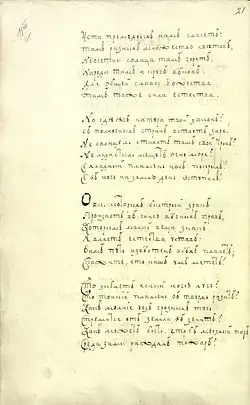 21
Уста премудрыхъ намъ гласятъ:
Тамъ разныхъ множество свѣтовъ,
Несчетны солнца тамъ горятъ,
Народы тамъ и кругъ вѣковъ:
Для общей славы Божества
Тамъ сила естества.
Но гдѣжъ натура твой законъ?
Съ полночныхъ странъ встаетъ заря!
Не солнце ль ставитъ тамъ свой тронъ?
Не мещутъ огнь моря?
Се хладный пламень насъ покрылъ!
Се въ ночь на землю день вступилъ!
О вы, которыхъ быстрый зракъ
Пронзаетъ въ книгу вѣчныхъ правъ,
Которымъ малый вещи знакъ
Являетъ естества уставъ:
Вамъ путь извѣстенъ всѣхъ планетъ;
Скажите, что нашъ умъ мятетъ?
Что зыблетъ ясный ночью лучъ?
Что тонкій пламень въ твердь разитъ?
Какъ молнія безъ грозныхъ тучъ
Стремится отъ земли въ зенитъ?
Какъ можетъ быть, чтобъ мерзлый паръ
Среди зимы раждалъ пожаръ?